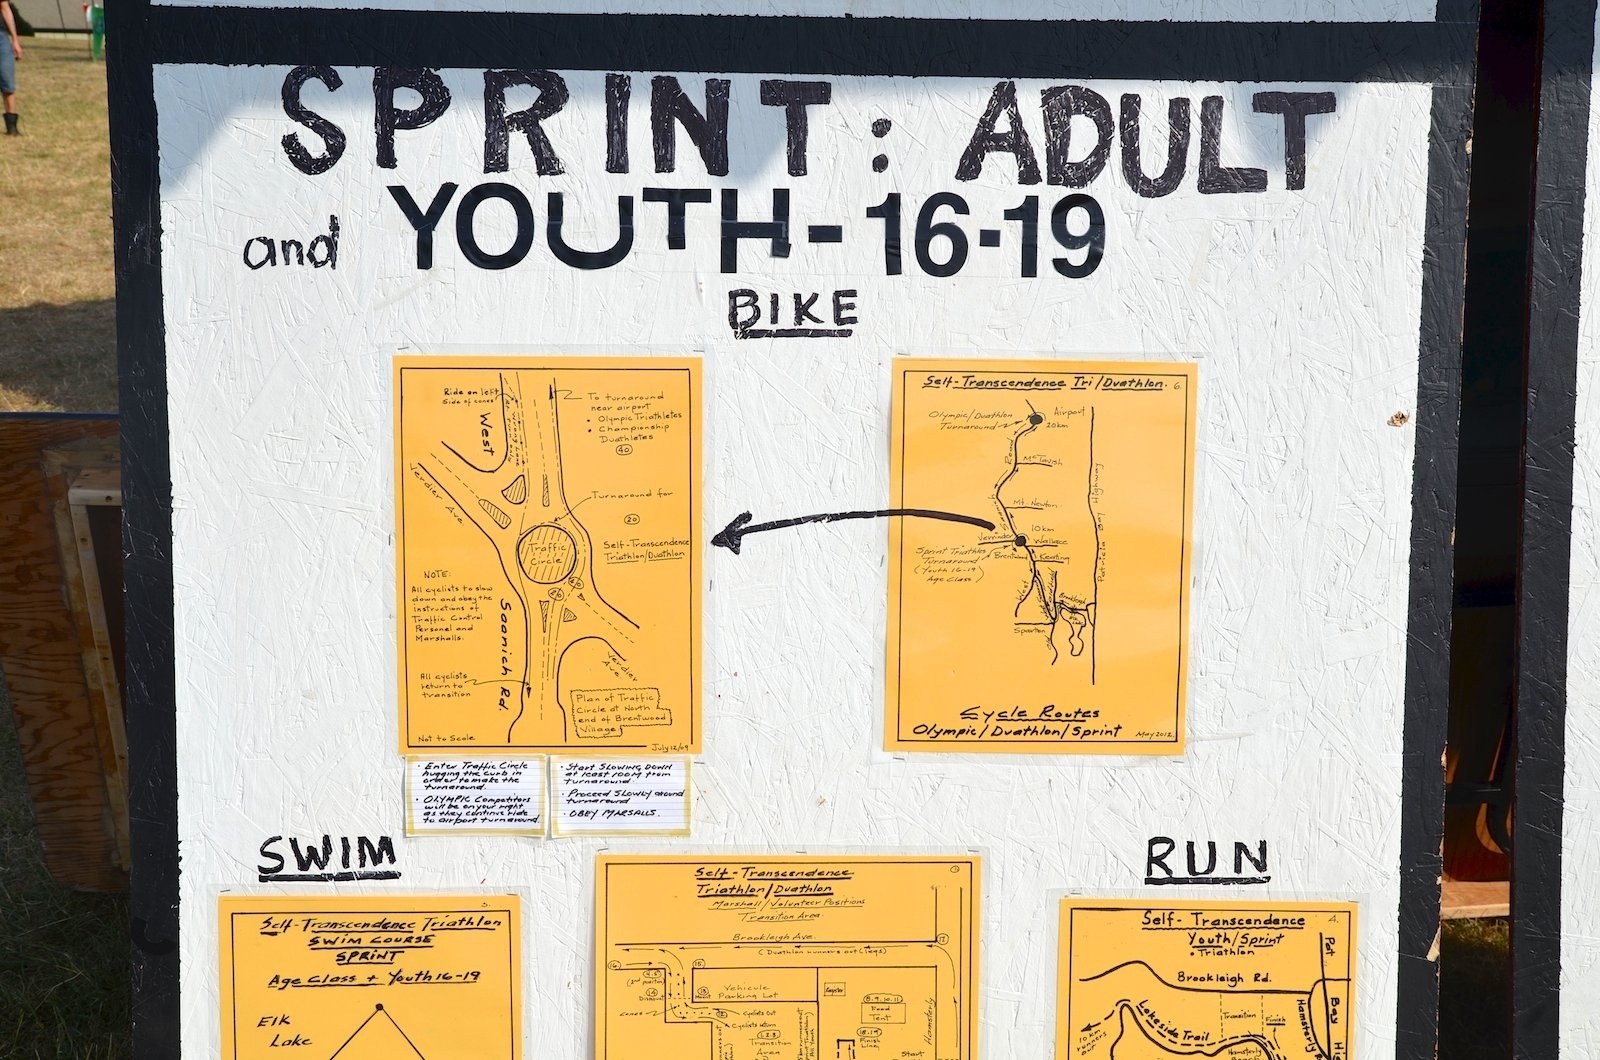 SPRINT: ADULT
and YOUTH-16-19
BIKE
Ride on left
Side of cones
West
To turnaround
near airport
• Olympic Triathletes
• Championship
Duathletes
40
Verdier
Ave
Turnaround for
20
Self-Transcendence
Triathlon/Duathlon
Traffic
Circle
NOTE:
All cyclists to slow
down and obey the
instructions of
Traffic Control
Personel and
Marshalls.
Saanich Rd.
All cyclists
return to
transition
Verdier
Ave
Plan of Traffic
Circle at North
end of Brentwood
Village
Not to Scale
July 12/09
• Enter Traffic Circle
hugging the curb in
order to make the
turnaround.
• OLYMPIC Competitors
will be on your right
as they continue ride
to airport turnaround.
• Start SLOWING DOWN
at least 100m from
turnaround.
• Proceed SLOWLY around
turnaround
• OBEY MARSALLS.
Self-Transcendence Tri/Duathlon. 6.
Olympic/Duathlon
Turnaround
Airport
20km
Road
McTavish
Mt. Newton
10km
Verdier
Wallace
Sprint Triathlon
Turnaround
(Youth 16-19)
Age Class
Brentwood
Keating
West
Sparton
Patricia Bay Highway
Cycle Routes
Olympic/Duathlon/Sprint
May 2012
SWIM
3.
Self-Transcendence Triathlon
SWIM COURSE
SPRINT
Age Class + Youth 16-19
Elk
Lake
Self-Transcendence
Triathlon/Duathlon
Marshall/Volunteer Positions
Transition Area
Brookleigh Ave.
(Duathlon runners out (1 leg))
17
16
15
(2nd position)
14
Dismount
13
Mount
Vehicule
Parking Lot
cones
12
Cyclists Out
Cyclists return
1,2,3.
Transition
Area
8.9.10.11
Food
Tent
18.19
Finish
Line
Start
Hamsterly
RUN
4.
Self-Transcendence
Youth/Sprint
• Triathlon
Brookleigh Rd.
Pat.
Bay
Hamsterly
Lakeside Trail
10 km
runners
out
Transition
Finish
Hamsterly